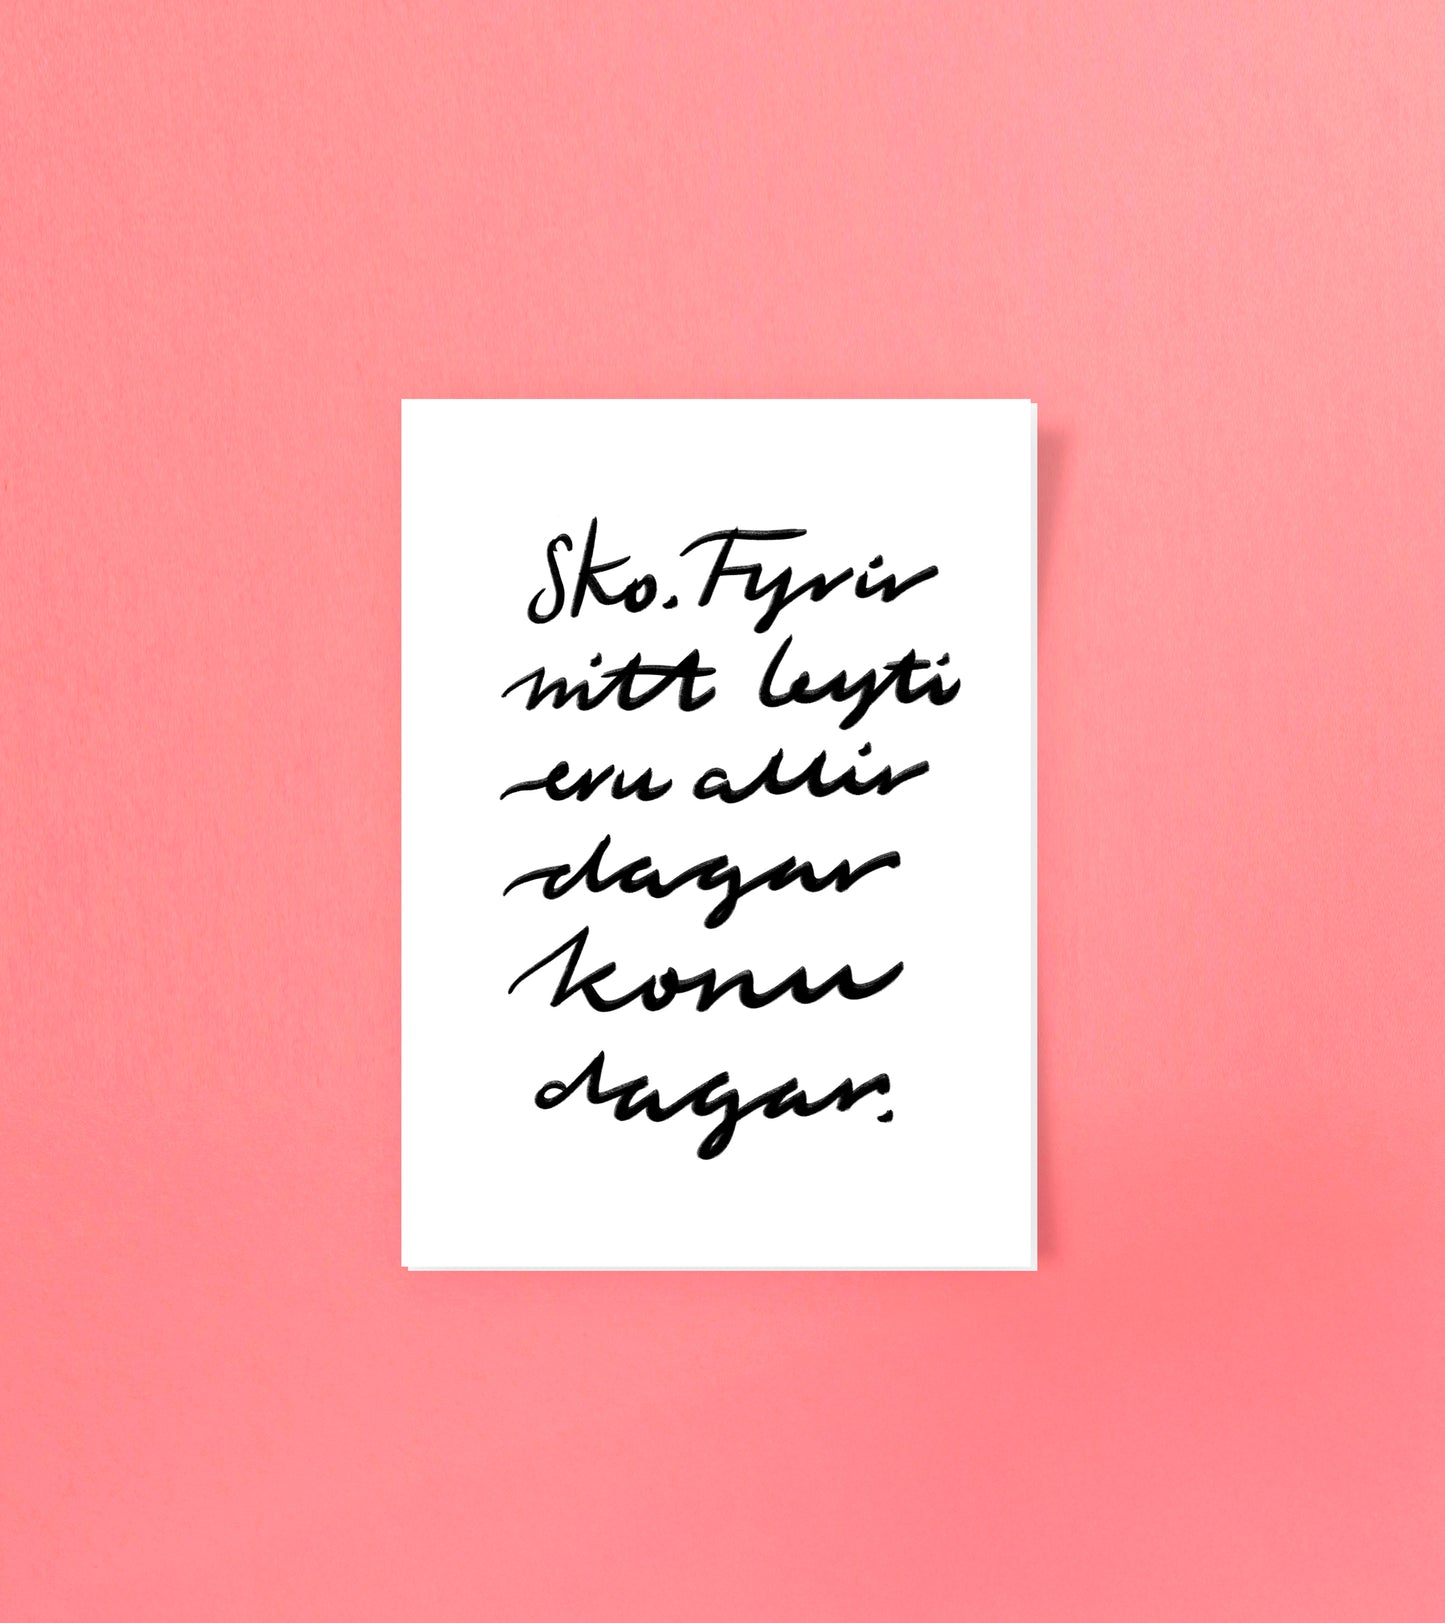 Sko. Fyrir
mitt leyti
eru allir
dagar
konu
dagar.